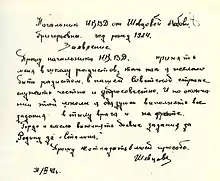 Начальник НКВД от Шевцовой Любови
Григорьевны. год рожд 1924.
Заявление.
Прошу начальника НКВД принять
меня в школу радистов, так как я желаю
быть радистом, нашей Советской стране
служить честно и добросовестно. И по окончании
этой школы я обязуюсь выполнять все
задания в тылу врага и на фронте.
боевые задания за
Родину за
Прошу не отказать в моей просьбе.
Шевцова